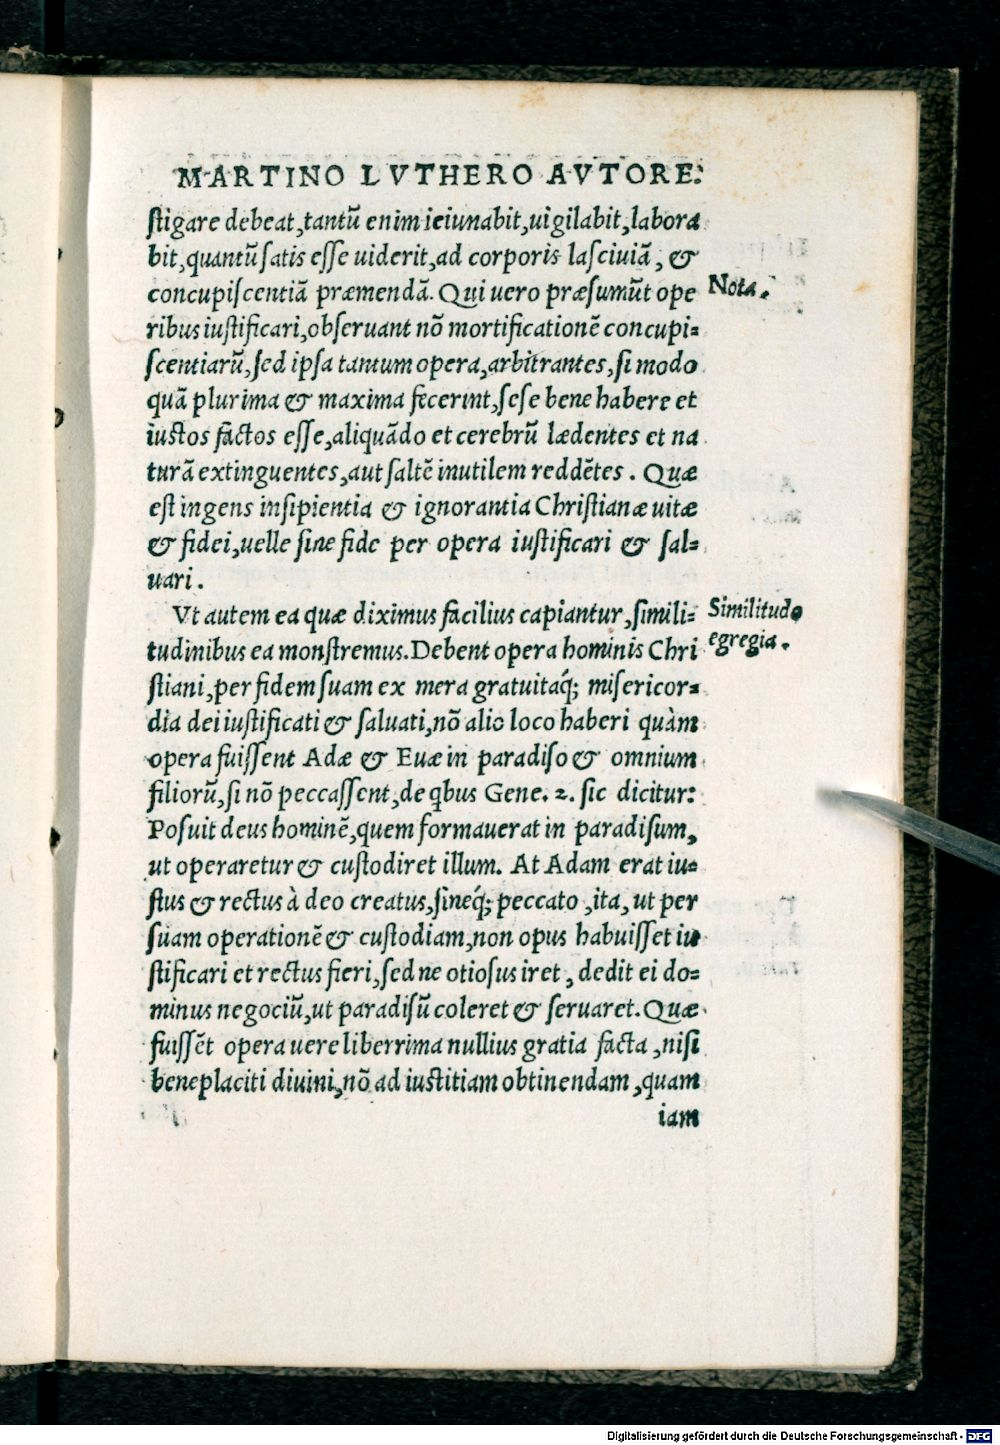 MARTINO LVTHERO AVTORE.
ſtigare debeat,tantũ enim ieiunabit,uigilabit,labora
bit,quantũ ſatis eſſe uiderit,ad corporis laſciuiã, &
concupiſcentiã præmendã. Qui uero præſumũt ope
Nota.
ribus iuſtificari,obſeruant nõ mortificationẽ concupi-
ſcentiarũ,ſed ipſa tantum opera,arbitrantes,ſi modo
quã plurima & maxima fecerint,ſeſe bene habere et
iuſtos factos eſſe,aliquãdo et cerebrũ lædentes et na
turã extinguentes,aut ſaltẽ inutilem reddẽtes. Quæ
eſt ingens inſipientia & ignorantia Chriſtianæ uitæ
& fidei,uelle ſine fide per opera iuſtificari & ſal-
uari.
Vt autem ea quæ diximus facilius capiantur,ſimili-
Similitudo
tudinibus ea monſtremus.Debent opera hominis Chri
egregia.
ſtiani,per fidem ſuam ex mera gratuitaq́; miſericor-
dia dei iuſtificati & ſaluati,nõ alio loco haberi quàm
opera fuiſſent Adæ & Euæ in paradiſo & omnium
filiorũ,ſi nõ peccaſſent,de qbus Gene. 2. ſic dicitur:
Poſuit deus hominẽ,quem formauerat in paradiſum,
ut operaretur & cuſtodiret illum. At Adam erat iu-
ſtus & rectus à deo creatus,ſineq́; peccato ,ita, ut per
ſuam operationẽ & cuſtodiam,non opus habuiſſet iu
ſtificari et rectus fieri,ſed ne otioſus iret, dedit ei do-
minus negociũ,ut paradiſũ coleret & ſeruaret. Quæ
fuiſſẽt opera uere liberrima nullius gratia facta ,niſi
beneplaciti diuini,nõ ad iuſtitiam obtinendam ,quam
iam
Digitalisierung gefördert durch die Deutsche Forschungsgemeinschaft - DFG